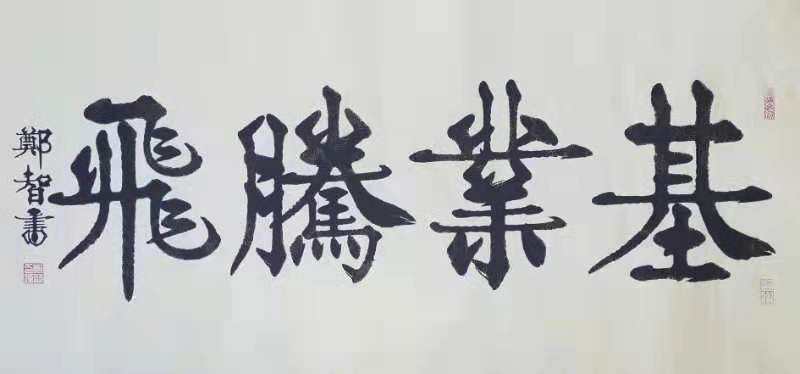 基業騰飛
鄭智書